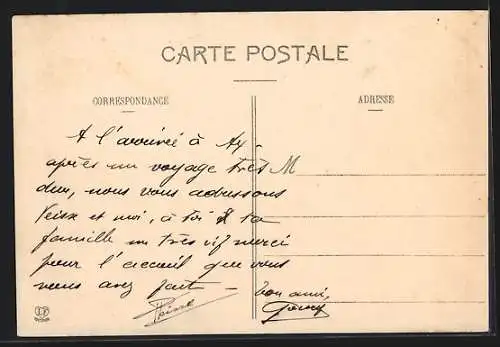 CARTE POSTALE
CORRESPONDANCE
ADRESSE
A l'arrivée à Ax -
après un voyage très
dur, nous vous adressons
et moi, à toi & ta
famille un très vif merci
pour l'accueil que vous
nous avez fait -
bon ami,
M